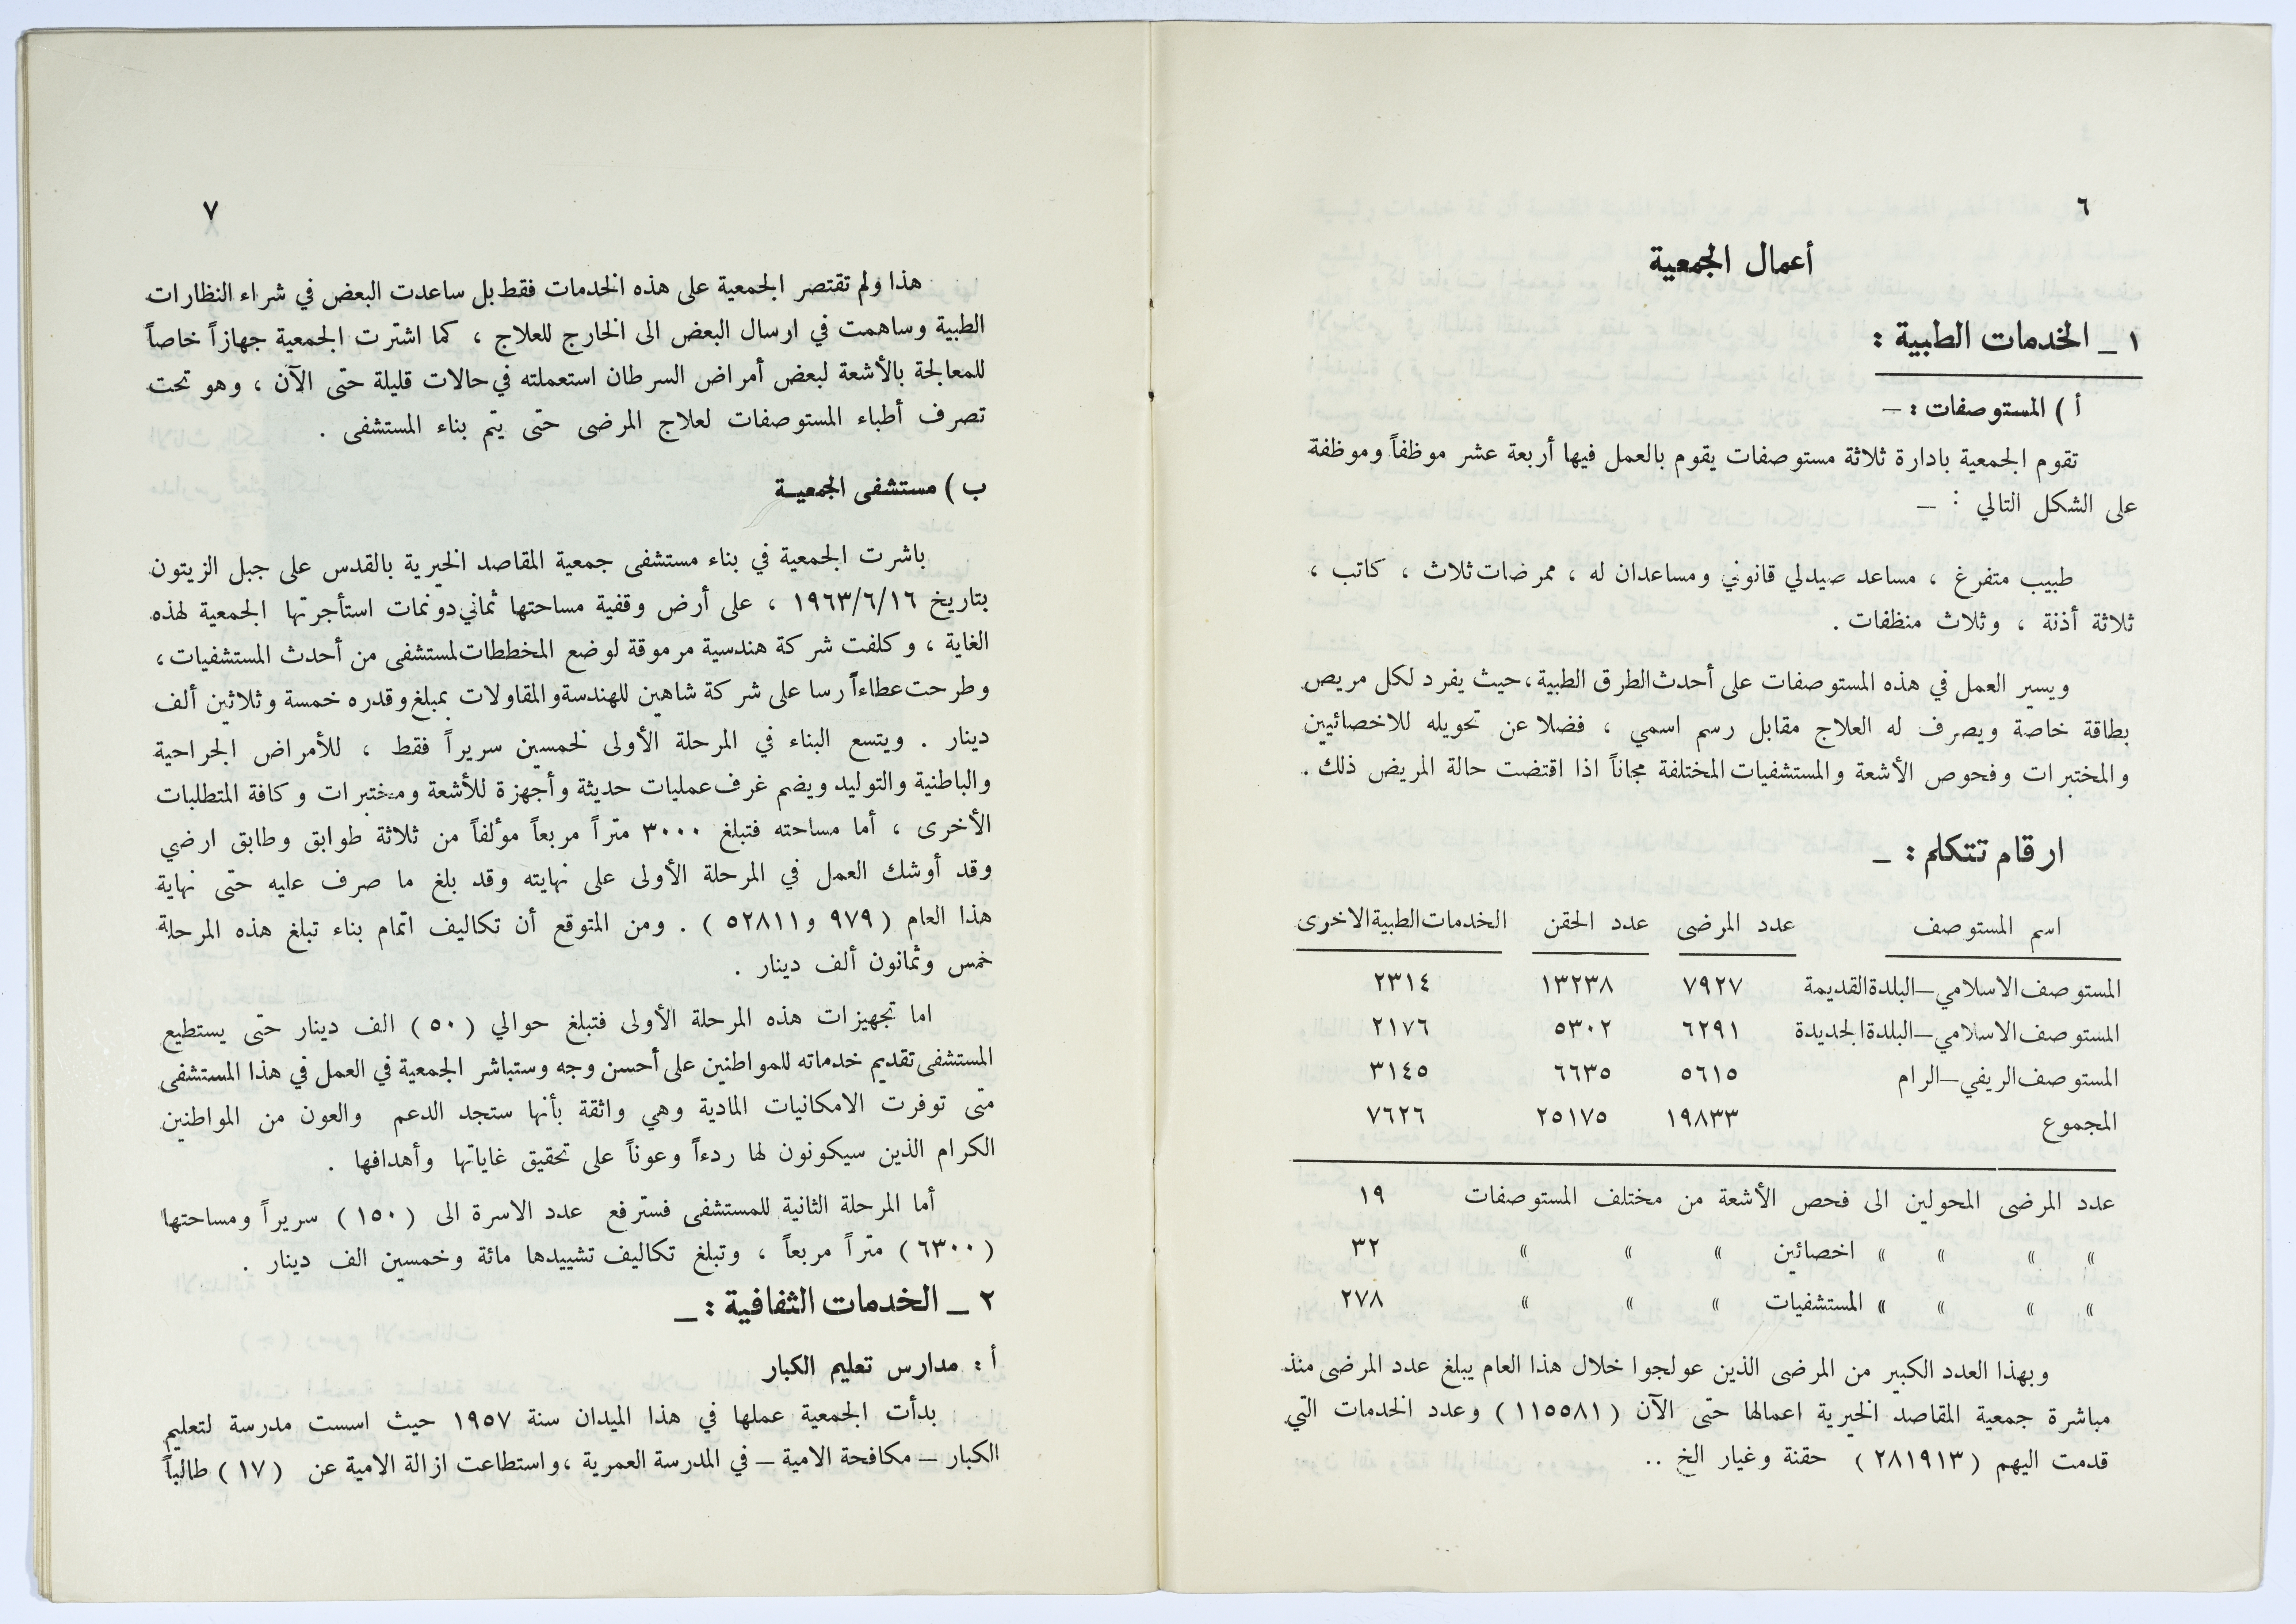 ٦
أعمال الجمعية
١ – الخدمات الطبية :
أ ) المستوصفات : –
تقوم الجمعية بادارة ثلاثة مستوصفات يقوم بالعمل فيها أربعة عشر موظفاً وموظفة
على الشكل التالي : –
طبيب متفرغ ، مساعد صيدلي قانوني ومساعدان له ، ممرضات ثلاث ، كاتب ،
ثلاثة أذنة ، وثلاث منظفات .
ويسير العمل في هذه المستوصفات على أحدث الطرق الطبية ، حيث يفرد لكل مريض
بطاقة خاصة ويصرف له العلاج مقابل رسم اسمي ، فضلا عن تحويله للاخصائيين
والمختبرات وفحوص الأشعة والمستشفيات المختلفة مجاناً اذا اقتضت حالة المريض ذلك .
ارقام تتكلم : –
اسم المستوصف عدد المرضى عدد الحقن الخدمات الطبية الاخرى
المستوصف الاسلامي – البلدة القديمة ٧٩٢٧ ١٣٢٣٨ ٢٣١٤
المستوصف الاسلامي – البلدة الجديدة ٦٢٩١ ٥٣٠٢ ٢١٧٦
المستوصف الريفي – الرام ٥٦١٥ ٦٦٣٥ ٣١٤٥
المجموع ١٩٨٣٣ ٢٥١٧٥ ٧٦٢٦
عدد المرضى المحولين الى فحص الأشعة من مختلف المستوصفات ١٩
» » » » اخصائين » » » ٣٢
» » » » المستشفيات » » » ٢٧٨
وبهذا العدد الكبير من المرضى الذين عولجوا خلال هذا العام يبلغ عدد المرضى منذ
مباشرة جمعية المقاصد الخيرية اعمالها حتى الآن ( ١١٥٥٨١ ) وعدد الخدمات التي
قدمت اليهم ( ٢٨١٩١٣ ) حقنة وغيار الخ ..
٧
هذا ولم تقتصر الجمعية على هذه الخدمات فقط بل ساعدت البعض في شراء النظارات
الطبية وساهمت في ارسال البعض الى الخارج للعلاج ، كما اشترت الجمعية جهازاً خاصاً
للمعالجة بالأشعة لبعض أمراض السرطان استعملته في حالات قليلة حتى الآن ، وهو تحت
تصرف أطباء المستوصفات لعلاج المرضى حتى يتم بناء المستشفى .
ب ) مستشفى الجمعية
باشرت الجمعية في بناء مستشفى جمعية المقاصد الخيرية بالقدس على جبل الزيتون
بتاريخ ١٩٦٣/٦/١٦ ، على أرض وقفية مساحتها ثماني دونمات استأجرتها الجمعية لهذه
الغاية ، وكلفت شركة هندسية مرموقة لوضع المخططات لمستشفى من أحدث المستشفيات ،
وطرحت عطاءاً رسا على شركة شاهين للهندسة والمقاولات بمبلغ وقدره خمسة وثلاثين ألف
دينار . ويتسع البناء في المرحلة الأولى لخمسين سريراً فقط ، للأمراض الجراحية
والباطنية والتوليد ويضم غرف عمليات حديثة وأجهزة للأشعة ومختبرات وكافة المتطلبات
الأخرى ، أما مساحته فتبلغ ٣٠٠٠ متراً مربعاً مؤلفاً من ثلاثة طوابق وطابق ارضي
وقد أوشك العمل في المرحلة الأولى على نهايته وقد بلغ ما صرف عليه حتى نهاية
هذا العام ( ٩٧٩ و ٥٢٨١١ ) . ومن المتوقع أن تكاليف اتمام بناء تبلغ هذه المرحلة
خمس وثمانون ألف دينار .
اما تجهيزات هذه المرحلة الأولى فتبلغ حوالي ( ٥٠ ) الف دينار حتى يستطيع
المستشفى تقديم خدماته للمواطنين على أحسن وجه وستباشر الجمعية في العمل في هذا المستشفى
متى توفرت الامكانيات المادية وهي واثقة بأنها ستجد الدعم والعون من المواطنين
الكرام الذين سيكونون لها ردءاً وعوناً على تحقيق غاياتها وأهدافها .
أما المرحلة الثانية للمستشفى فسترفع عدد الاسرة الى ( ١٥٠ ) سريراً ومساحتها
( ٦٣٠٠ ) متراً مربعاً ، وتبلغ تكاليف تشييدها مائة وخمسين الف دينار .
٢ – الخدمات الثفافية : –
أ : مدارس تعليم الكبار
بدأت الجمعية عملها في هذا الميدان سنة ١٩٥٧ حيث اسست مدرسة لتعليم
الكبار – مكافحة الامية – في المدرسة العمرية ، واستطاعت ازالة الامية عن ( ١٧ ) طالباً